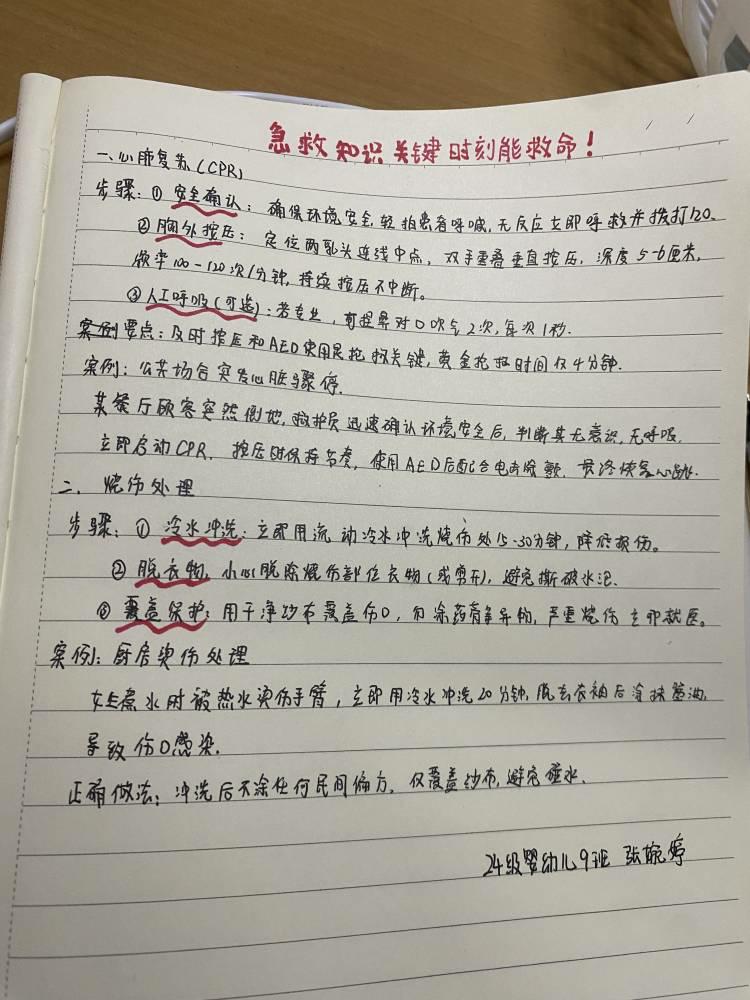 急救知识关键时刻能救命！
一、心肺复苏(CPR)
步骤：① 安全确认：确保环境安全,轻拍患者呼喊,无反应立即呼救并拨打120。
② 胸外按压：定位两乳头连线中点，双手重叠垂直按压，深度5-6厘米，
频率100-120次/分钟，持续按压不中断。
③ 人工呼吸(可选)：若专业，每对口吹气2次,每次1秒.
案例要点：及时按压和AED使用是抢救关键，黄金抢救时间仅4分钟.
案例：公共场合突发心脏骤停.
某餐厅顾客突然倒地,救护员迅速确认环境安全后,判断其无意识,无呼吸,
立即启动CPR，按压时保持节奏，使用AED后配合电击除颤，最终恢复心跳.
二、烧伤处理
步骤：① 冷水冲洗：立即用流动冷水冲洗烧伤处15-30分钟，降低损伤。
② 脱衣物，小心脱除烧伤部位衣物(或剪开)，避免撕破水泡.
③ 覆盖保护：用干净纱布覆盖伤口，勿涂药膏等异物，严重烧伤立即就医。
案例：厨房烫伤处理
女士煮水时被热水烫伤手臂，立即用冷水冲洗20分钟，脱去衣袖后涂抹酱油，
导致伤口感染.
正确做法：冲洗后不涂任何民间偏方，仅覆盖纱布,避免碰水.
24级婴幼儿9班 张婉婷